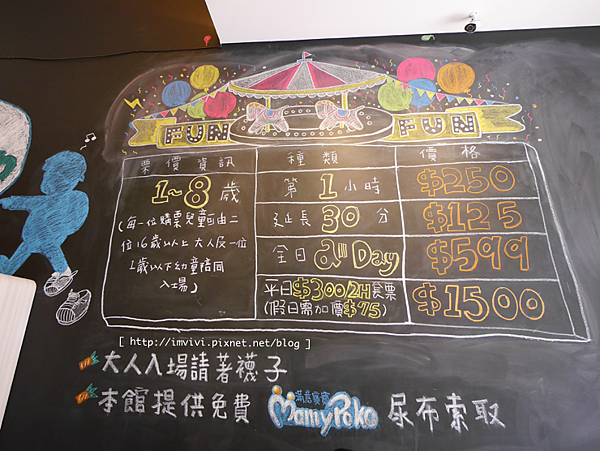 FUN FUN
票價資訊 種類 價格
1~8歲
(每一位購票兒童可由二
位16歲以上大人及一位
1歲以下幼童陪同
入場)
第1小時 $250
延長30分 $125
全日 all Day $599
平日$300/2H套票 $1500
(假日需加價$75)
[ http://imvivi.pixnet.net/blog ]
大人入場請著襪子
本館提供免費 滿意寶寶 MamyPoko 尿布索取